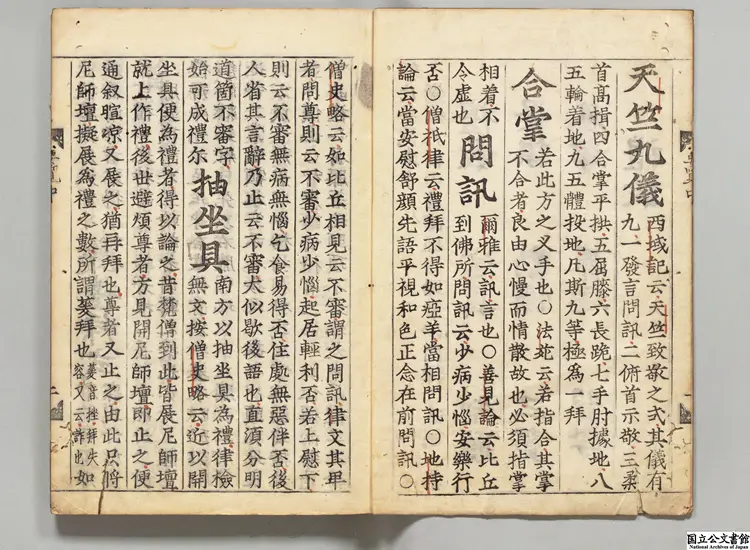 天竺九儀
西域記云天竺致敬之式其儀有
九一發言問訊二俯首示敬三舉
首高揖四合掌平拱五屈膝六長跪七手肘據地八
五輪着地九五體投地凡斯九等極為一拜
合掌
若此方之叉手也○法苑云若指合其掌
不合者良由心慢而情散故也必須指掌
相着不
令虛也
問訊
爾雅云訊言也○善見論云比丘
到佛所問訊云少病少惱安樂行
否○僧祇律云禮拜不得如瘂羊當相問訊○地持
論云當安慰舒顔先語平視和色正念在前問訊○
僧史略云如比丘相見云不審謂之問訊律文其卑
者問尊則云不審少病少惱起居輕利否若上慰下
則云不審無病無惱乞食易得否住處無惡伴否後
人省其言辭乃止云不審大似歇後語也直須分明
道箇不審字
始可成禮尓
抽坐具
南方以抽坐具為禮律檢
無文按僧史略云近以開
坐具便為禮者得以論之昔梵僧到此皆展尼師壇
就上作禮後世避煩尊者方見開尼師壇即止之便
通叙暄凉又展之猶再拜也尊者又止之由此只將
尼師壇擬展為禮之數所謂蓌拜也
蓌音挫拜失
容又云詐也
如
国立公文書館
National Archives of Japan